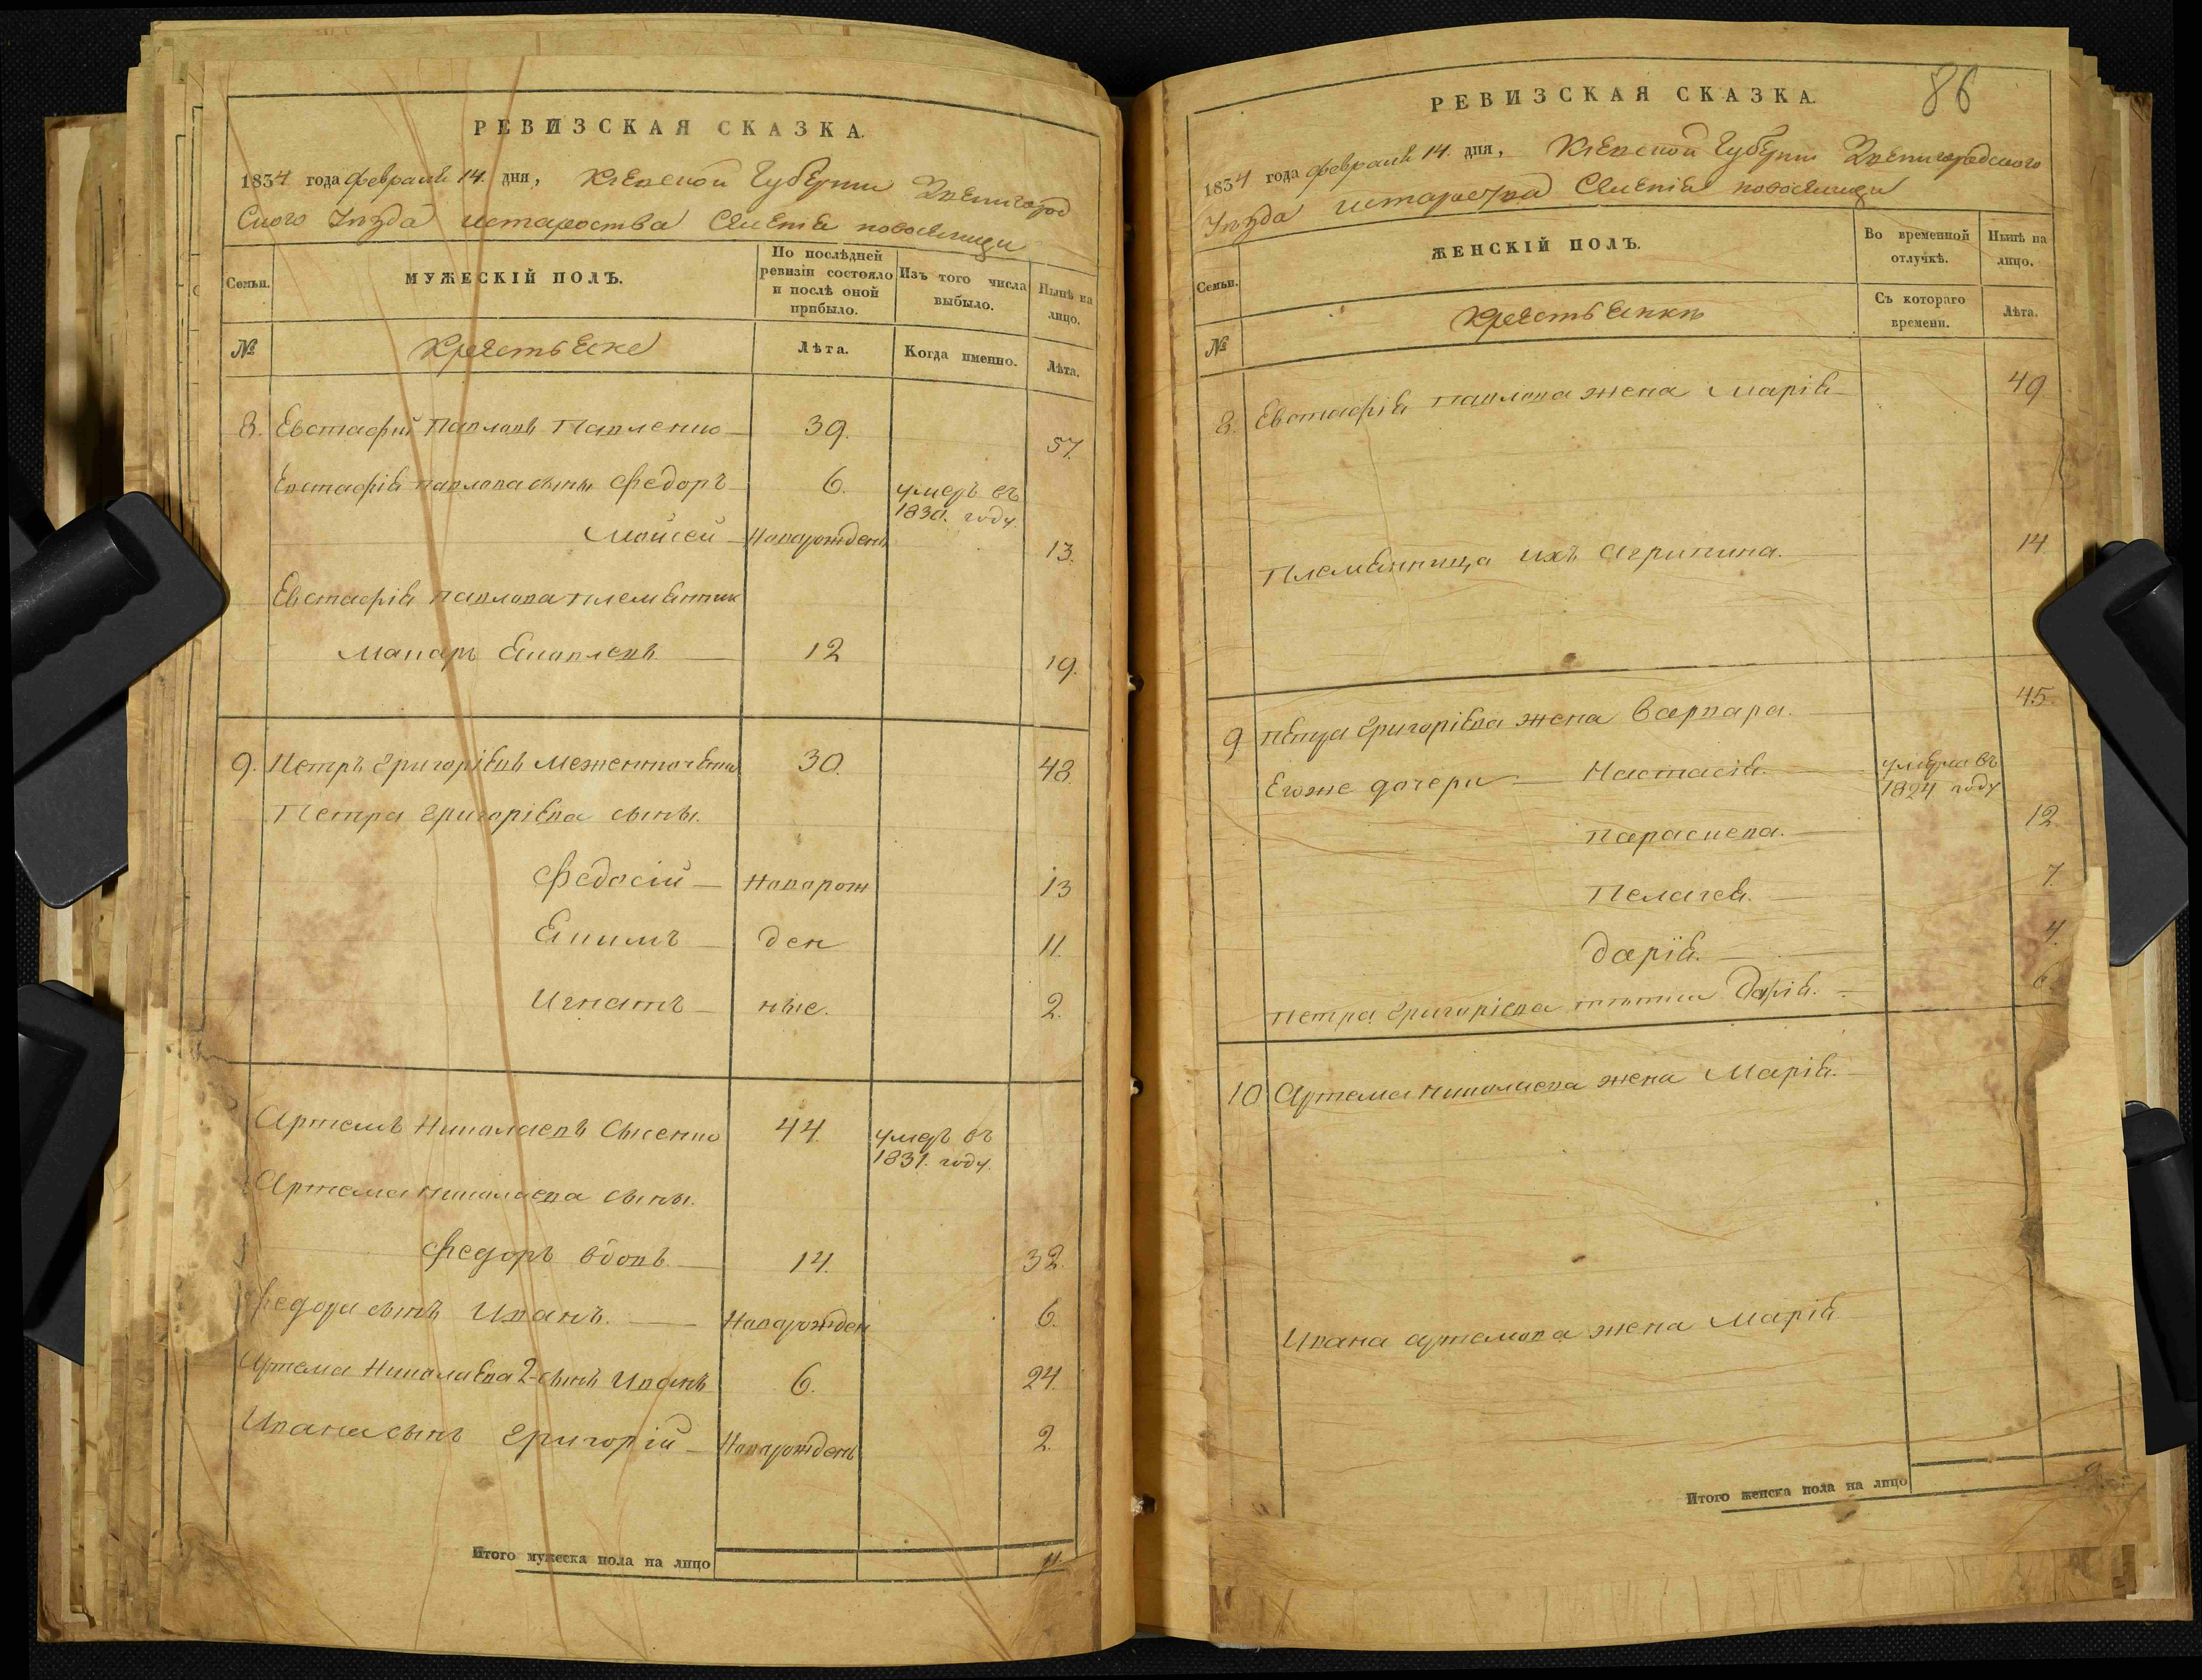 РЕВИЗСКАЯ СКАЗКА.
1834 года февраля 14. дня, Кіевской Губерніи Звенигород
Ского Уѣзда староства Селенія новоселици
Семьи.
МУЖЕСКІЙ ПОЛЪ.
По послѣдней ревизіи состояло и послѣ оной прибыло.
Изъ того числа выбыло.
Нынѣ на лицо.
№
Крестьяне
Лѣта.
Когда именно.
Лѣта.
8. Евстафій Павловъ Павленко 39. 57.
Евстафія павлова сыны Федоръ 6. умеръ въ 1830. году.
Мойсей Новорожденъ 13.
Евстафія павлова племянник
Макаръ Яковлевъ 12 19.
9. Петръ григоріевъ 30. 48.
Петра григоріева сыны.
Федосій Новорож 13
Якимъ ден 11.
Игнатъ ные. 2.
Артемъ Николаевъ 44. умеръ въ 1831. году.
Артема николаева сыны.
Федоръ вдовъ 14. 32.
федора сынъ Иванъ. Новорожден 6.
Артема Николаева 2-сынъ Иванъ 6. 24.
Ивана сынъ григорій Новорожденъ 2.
Итого мужеска пола на лицо 11.
86
РЕВИЗСКАЯ СКАЗКА.
1834 года февраля 14. дня, Кіевской Губерніи Звенигородского
Уѣзда староства Селенія новоселици
Семьи.
ЖЕНСКІЙ ПОЛЪ.
Во временной отлучкѣ.
Нынѣ на лицо.
№
Крестьянки
Съ котораго времени.
Лѣта.
8. Евстафія павлова жена Марія 49
Племянница ихъ агрипина. 14.
9 петра григоріева жена варвара. 45.
Егоже дочери Настасія. умерла въ 1824 году
параскева. 12
Пелагея. 7.
дарія. 4.
петра григоріева Дарія. 6
10 Артема николаева жена Марія.
Ивана артемова жена Марія
Итого женска пола на лицо 9.